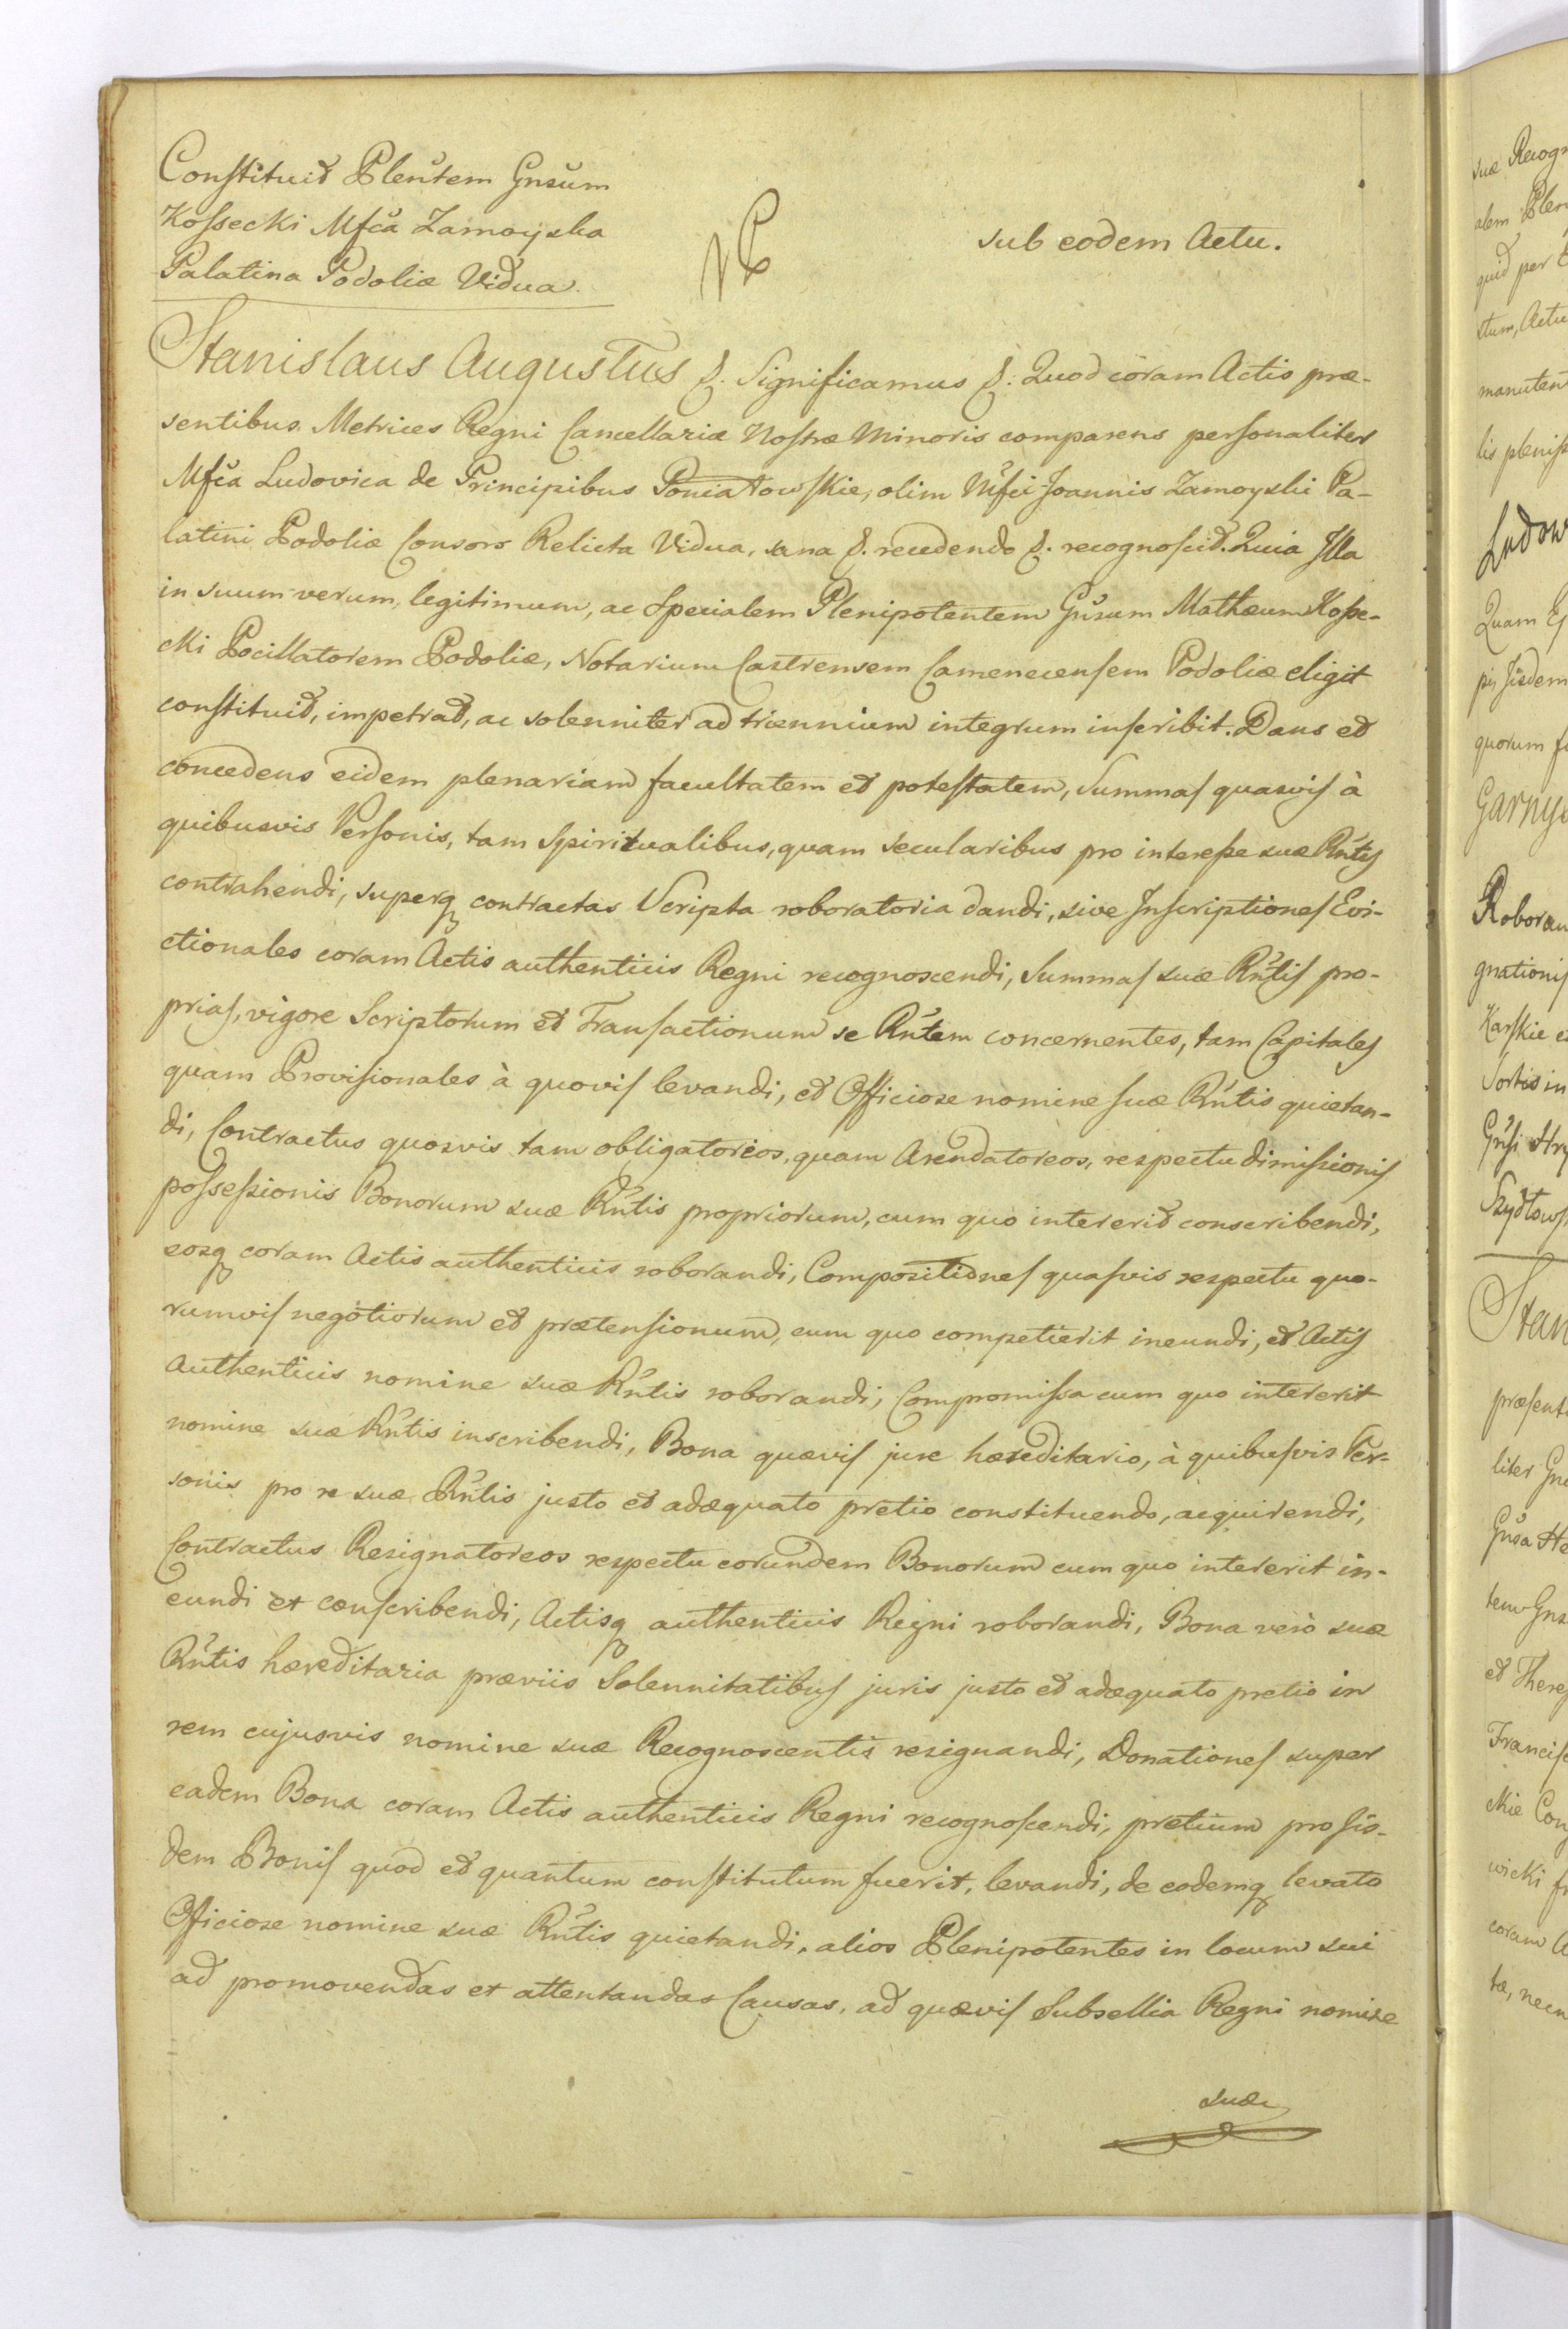 Constituit Plentem Gnsum
Kossecki Mfca Zamoyska
Palatina Podoliæ Vidua.
sub eodem Actu.
Stanislaus Augustus &. Significamus &: Quod coram Actis præ-
sentibus Metrices Regni Cancellariæ Nostræ Minoris comparens personaliter
Mfca Ludovica de Principibus Poniatowskie, olim Mfci Joannis Zamoyski Pa-
latini Podoliæ Consors Relicta Vidua, sana &. recedendo &. recognoscit. Quia Illa
in suum verum, legitimum, ac Specialem Plenipotentem Gnsum Mathæum Kosse-
cki Pocillatorem Podoliæ, Notarium Castrensem Camenecensem Podoliæ eligit
constituit, impetrat, ac solenniter ad triennium integrum inscribit. Dans et
concedens eidem plenariam facultatem et potestatem, Summas quasvis à
quibusvis Personis, tam Spiritualibus, quam secularibus pro interesse suæ Rntis
contrahendi, superq contractas Scripta roboratoria dandi, sive Inscriptiones Evi-
ctionales coram Actis authenticis Regni recognoscendi, Summas suæ Rntis pro-
prias, vigore Scriptorum et Transactionum se Rntem concernentes, tam Capitales
quam Provisionales à quovis levandi, et Officiose nomine suæ Rntis quietan-
di, Contractus quosvis tam obligatorios, quam Arendatoreos, respectu dimissionis
possessionis Bonorum suæ Rntis propriorum, cum quo intererit conscribendi,
eosq coram Actis authenticis roborandi, Compositiones quasvis respectu quo-
rumvis negotiorum et prætensionum, cum quo competierit ineundi, et Actis
Authenticis nomine suæ Rntis roborandi, Compromissa cum quo intererit
nomine suæ Rntis inscribendi, Bona quævis jure hæreditario, à quibusvis Per-
sonis pro re suæ Rntis justo et adæquato pretio constituendo, acquirendi,
Contractus Resignatoreos respectu eorundem Bonorum cum quo intererit in-
eundi et conscribendi, Actisq authenticis Regni roborandi, Bona verò suæ
Rntis hæreditaria præviis Solennitatibus juris justo et adæquato pretio in
rem cujusvis nomine suæ Recognoscentis resignandi, Donationes super
eadem Bona coram Actis authenticis Regni recognoscendi, pretium pro iis-
dem Bonis quod et quantum constitutum fuerit, levandi, de eodemq levato
Officiose nomine suæ Rntis quietandi, alios Plenipotentes in locum sui
ad promovendas et attentandas Causas, ad quævis Subsellia Regni nomine
suæ
suæ Recog
alem Plen
quid per
stum, Actu
manuten
lis pleniss
Ludow
Quam
quorum
Garny
Roboran
gnationis
Karskie
Sortis in
Gnsi
Szydłows
Stan
præsent
liter Gn
Gnsa He
tem Gns
et Theres
Francis
ckie Con
wicki
coram A
tæ, nec